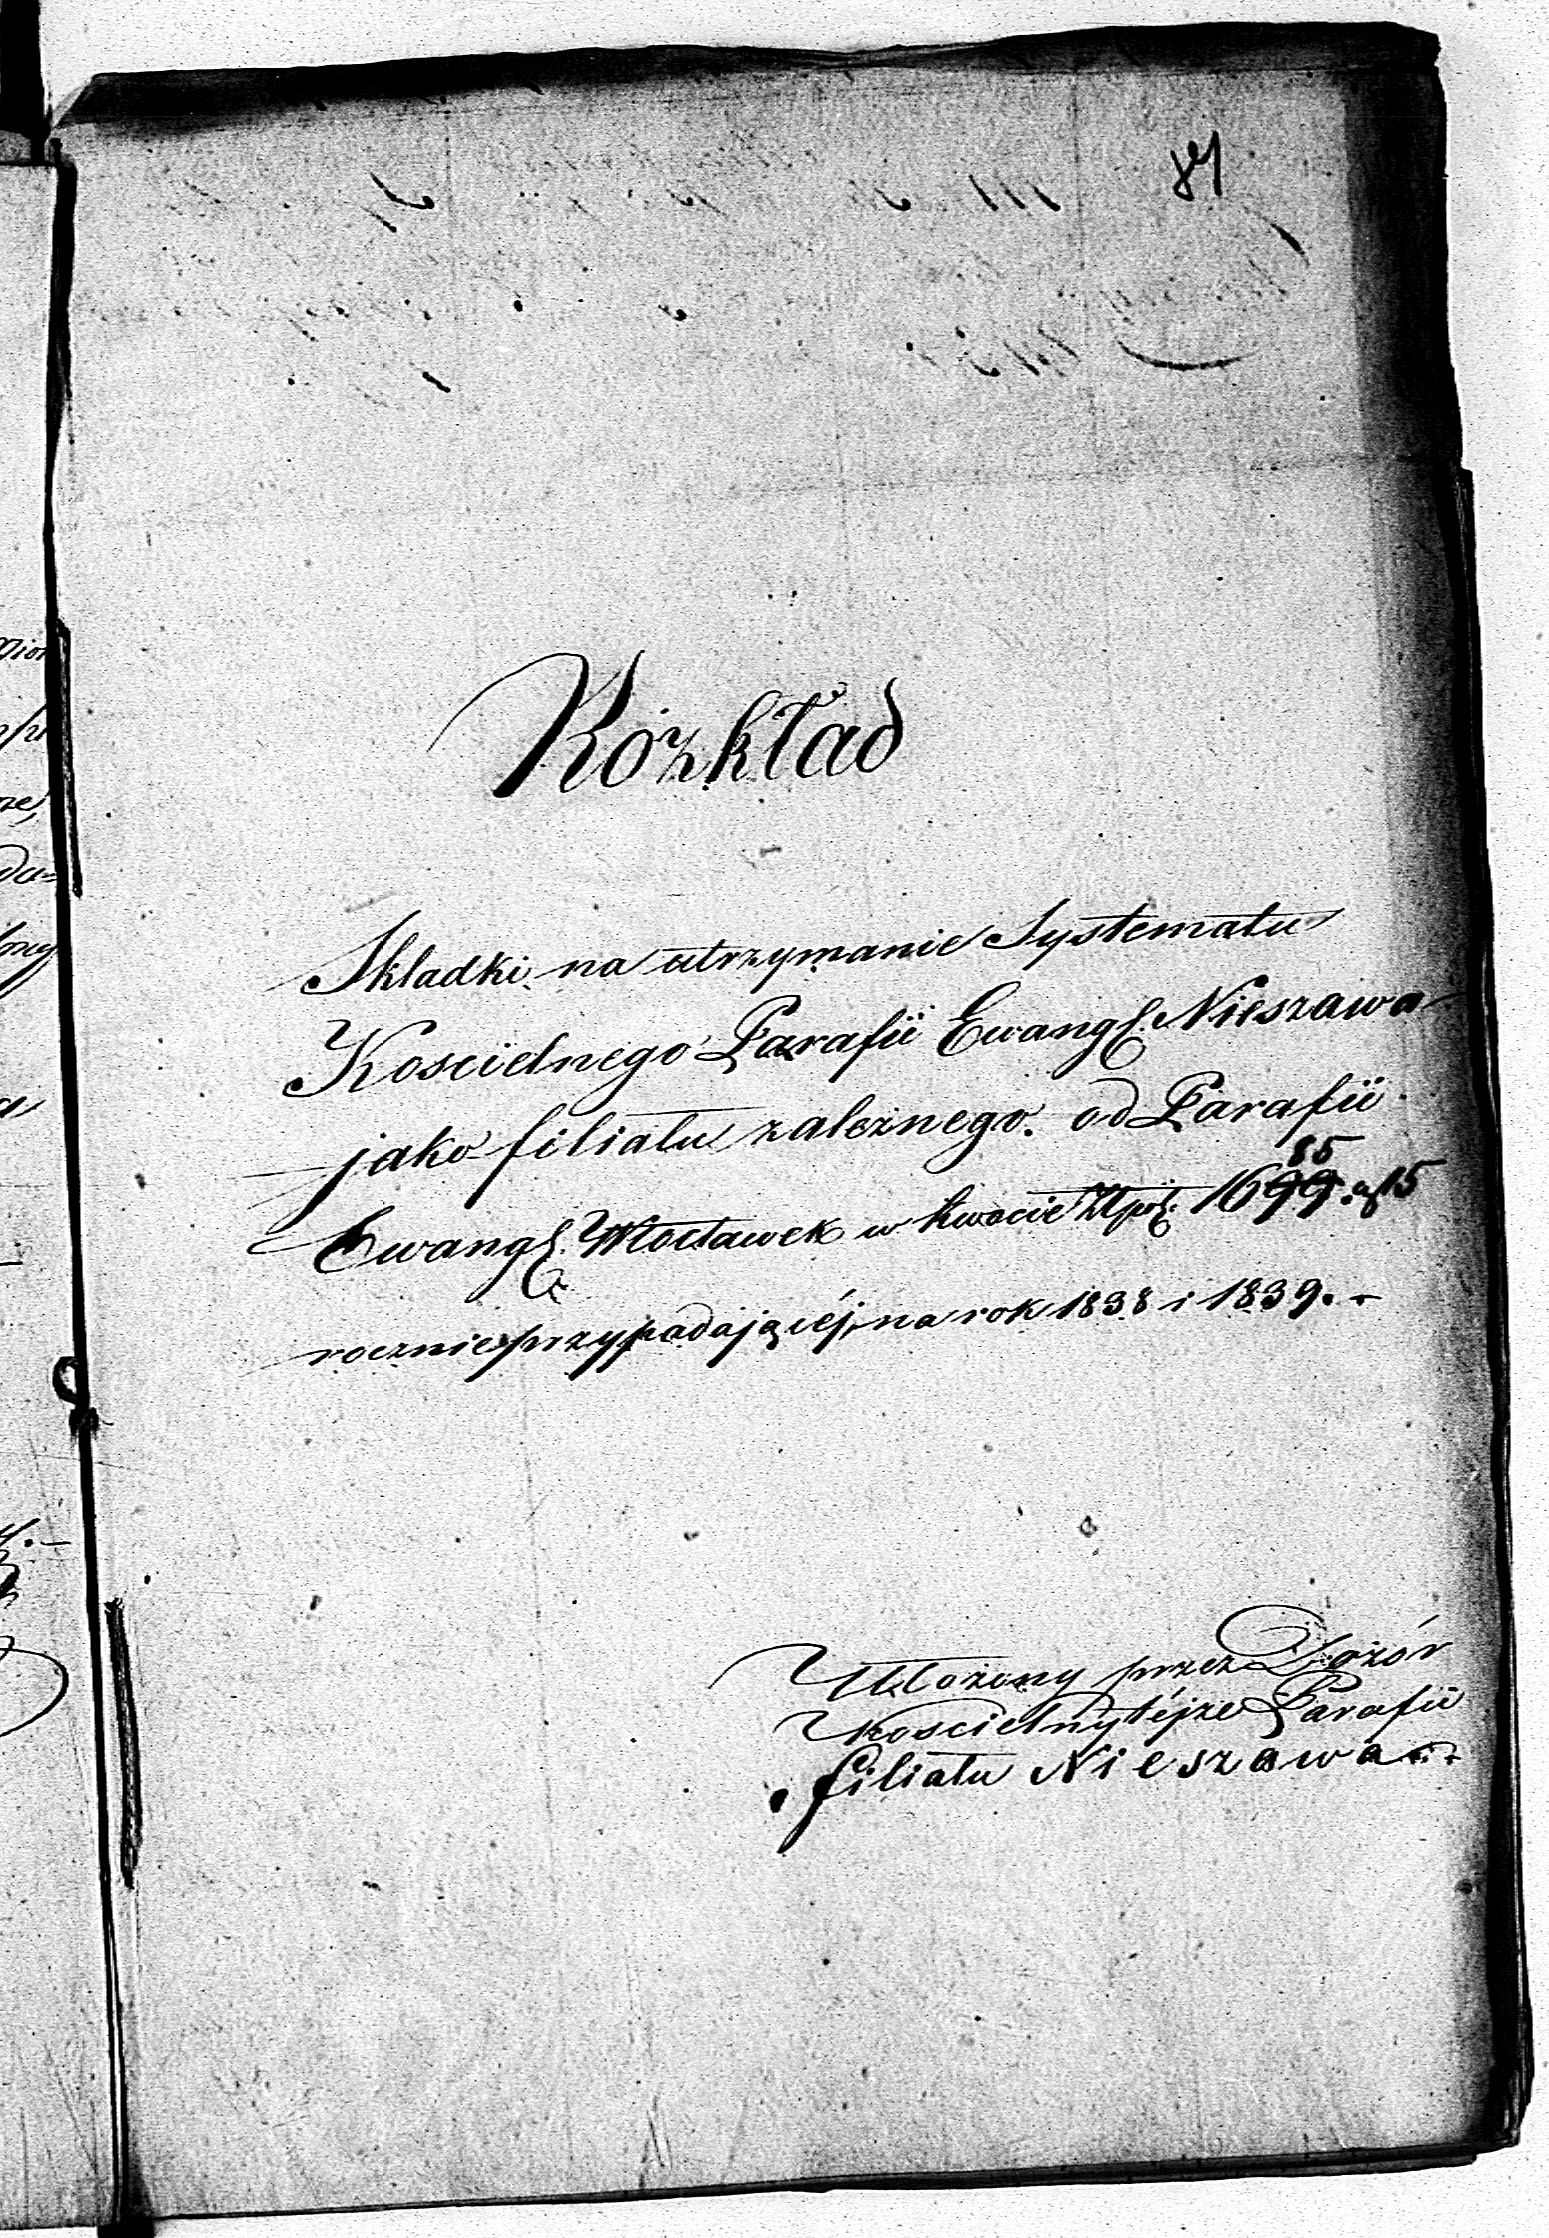 87
Rozkład
Składki na utrzymanie Systematu
Koscielnego Parafii Ewangl. Nieszawa
jako filiału zależnego od Parafii
85
Ewangl. Włocławek w kwocie Złpol. 1699. g 15
rocznie przypadającéj, na rok 1838 i 1839. -
Ułożony przez Dozór
Koscielny téjże Parafii
filiału Nieszawa